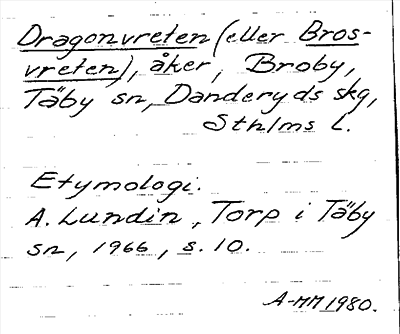 Dragonvreten (eller Bros-
vreten), åker, Broby,
Täby sn, Danderyds skg,
Sthlms l.
Etymologi.
A. Lundin, Torp i Täby
sn, 1966, s. 10.
A-MM 1980.